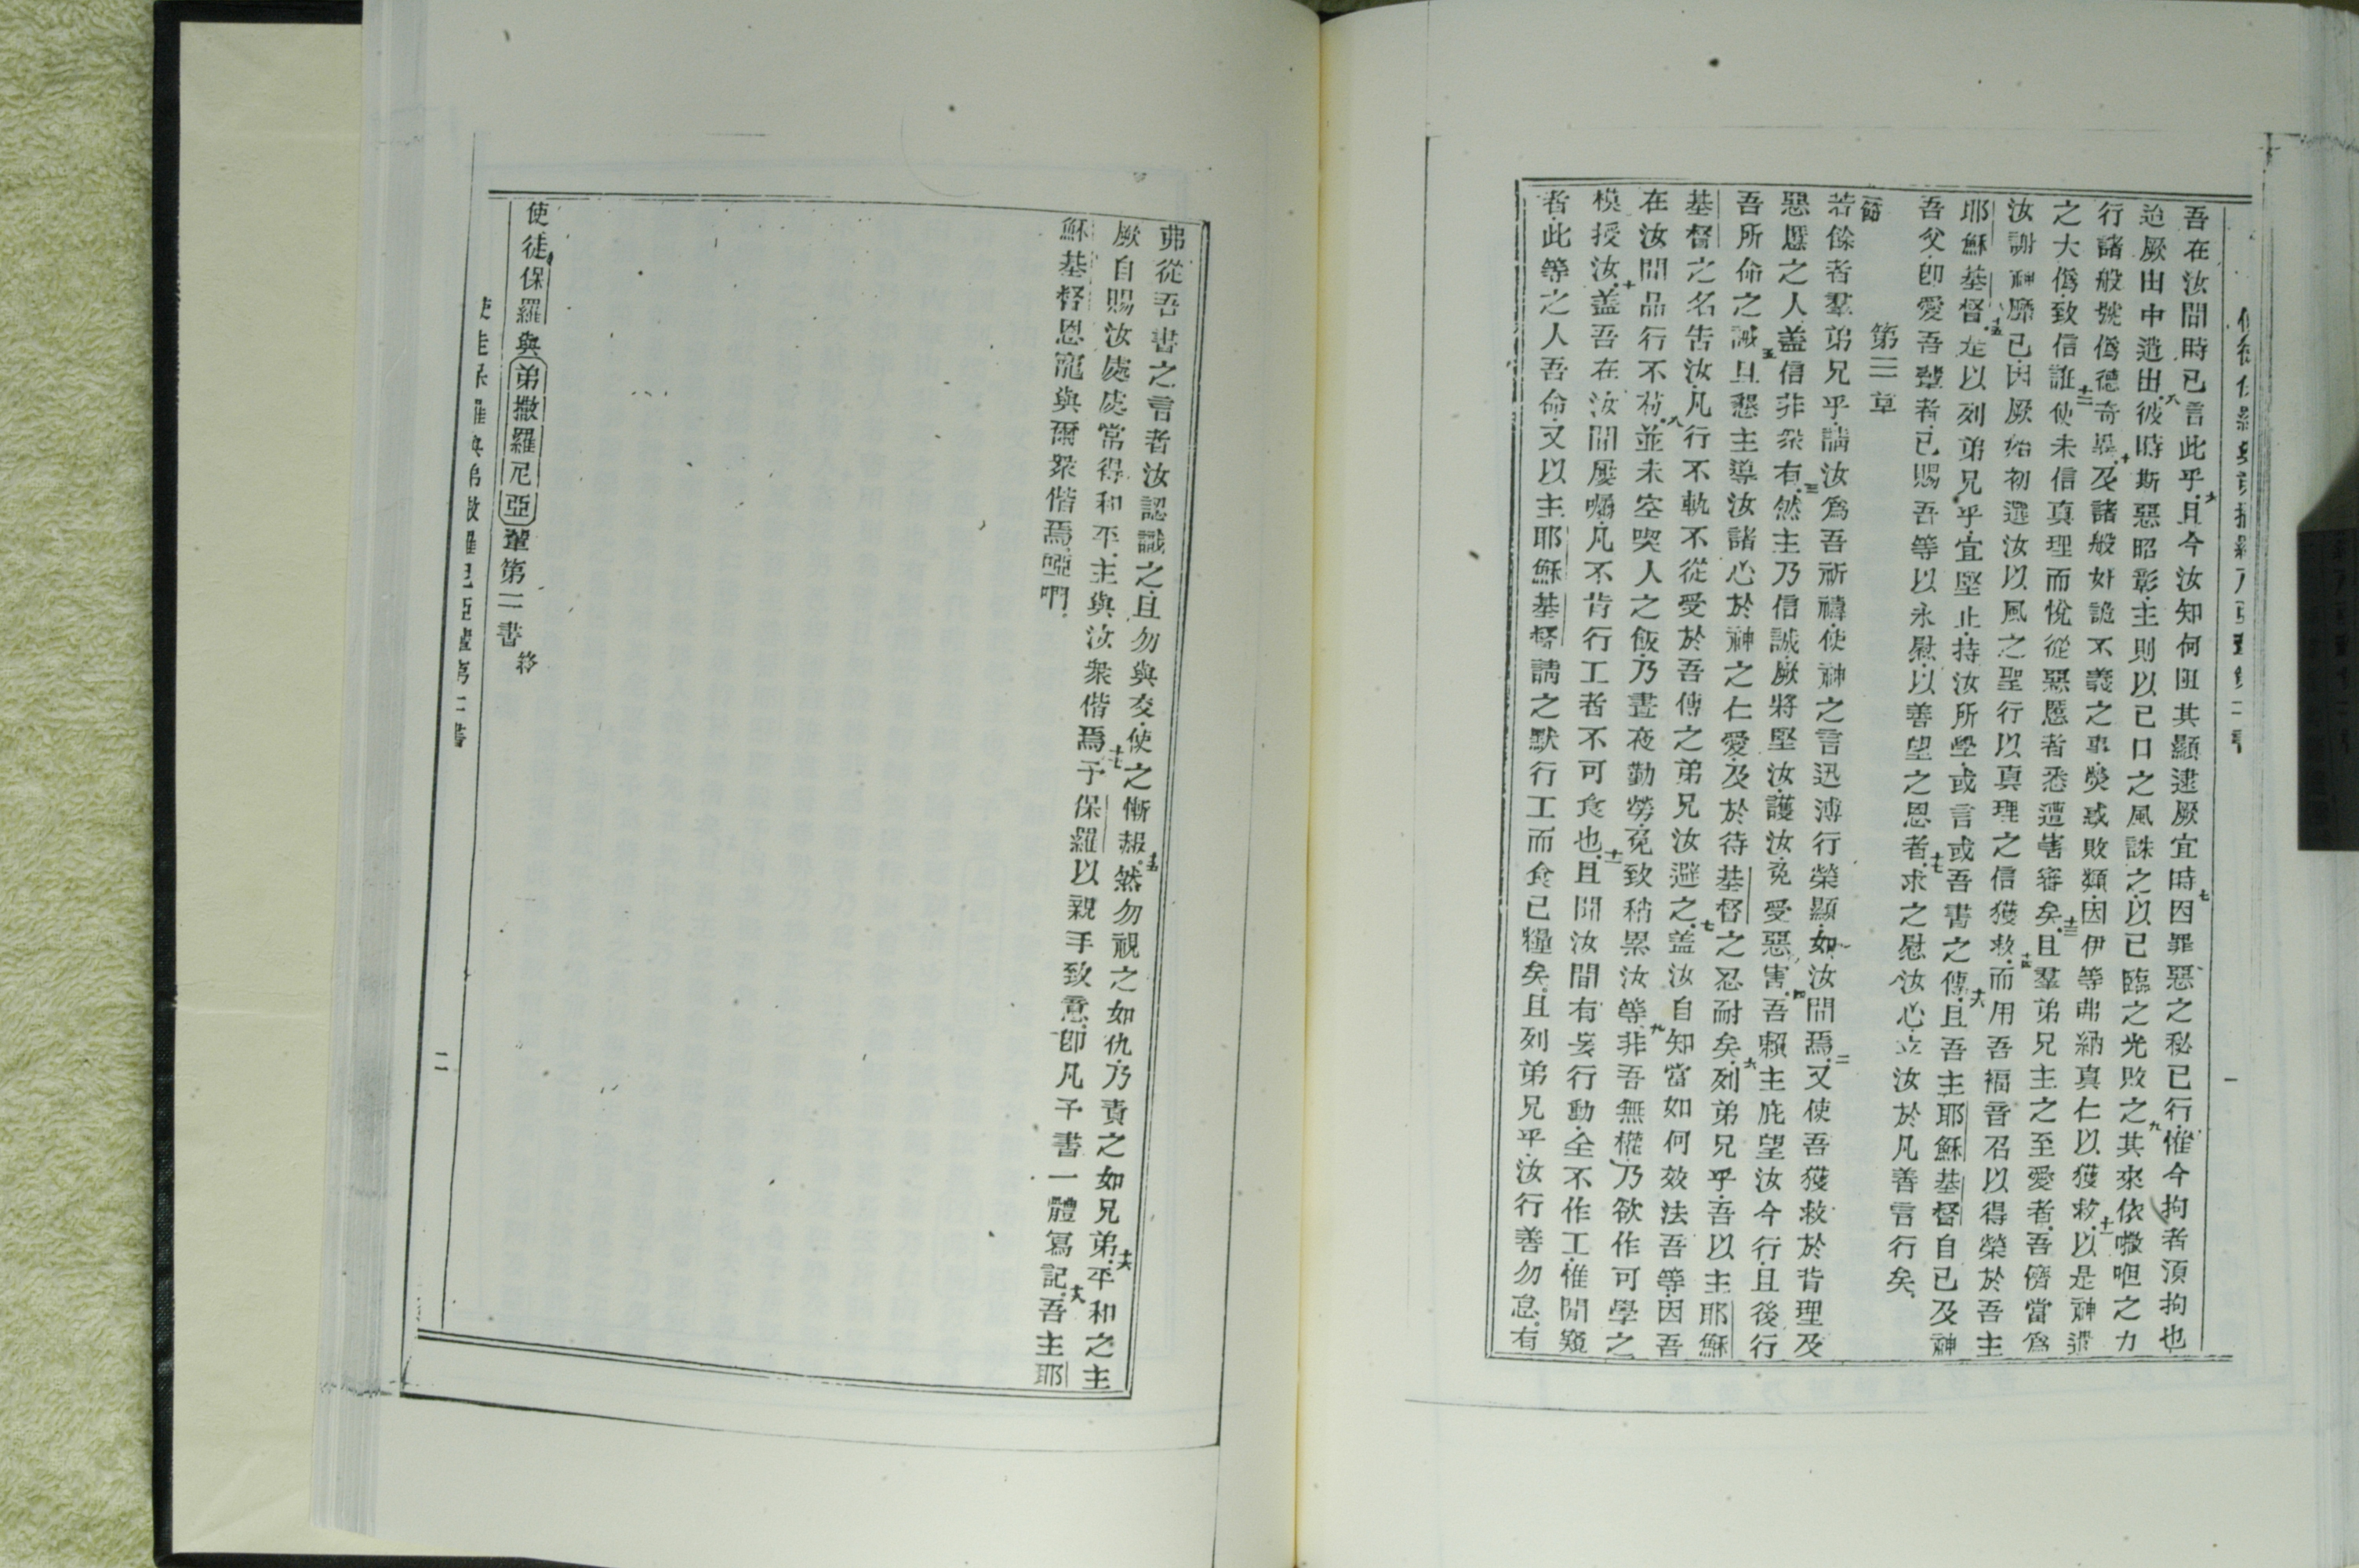 吾在汝間時已言此乎六且今汝知何阻其顯逮厥宜時七因罪惡之秘已行惟今拘者須拘也
迨厥由中遣出八彼時斯惡昭彰主則以已口之風誅之以已臨之光敗之九其來依㘔呾之力
行諸般號偽德奇異十及諸般奸詭不義之事熒惑敗類因伊等弗納真仁以獲救十一以是神遣
之大偽致信誑十二使未信真理而悅從惡慝者悉遭害審矣十三且羣弟兄主之至愛者吾儕當為
汝謝神靡已因厥始初選汝以風之聖行以真理之信獲救十四而用吾福音召以得榮於吾主
耶穌基督十五是以列弟兄乎宜堅止持汝所學或言或吾書之傳十六且吾主耶穌基督自已及神
吾父即愛吾輩者已賜吾等以永慰以善望之恩者十七求之慰汝心立汝於凡善言行矣
第三章
一若餘者羣弟兄乎請汝為吾祈禱使神之言迅溥行榮顯如汝間焉二又使吾獲救於背理及
惡慝之人盖信非衆有三然主乃信誠厥將堅汝護汝免受惡害四吾賴主庇望汝今行且後行
吾所命之誡五且懇主導汝諸心於神之仁愛及於待基督之忍耐矣六列弟兄乎吾以主耶穌
基督之名告汝凡行不軌不從受於吾傳之弟兄汝避之七盖汝自知當如何效法吾等因吾
在汝間品行不苟八並未空喫人之飯乃晝夜勤勞免致稍累汝等九非吾無權乃欲作可學之
模授汝十盖吾在汝間屢囑凡不肯行工者不可食也十一且聞汝間有妄行動全不作工惟閒窺
者此等之人吾命又以主耶穌基督請之默行工而食已糧矣且列弟兄乎汝行善勿怠有
弗從吾書之言者汝認識之且勿與交使之慚赧十五然勿視之如仇乃責之如兄弟十六平和之主
厥自賜汝處處常得和平主與汝衆偕焉十七予保羅以親手致意即凡予書一體寫記十八吾主耶
穌基督恩寵與爾衆偕焉啞啊
使徒保羅與弟撒羅尼亞輩第二書終
二